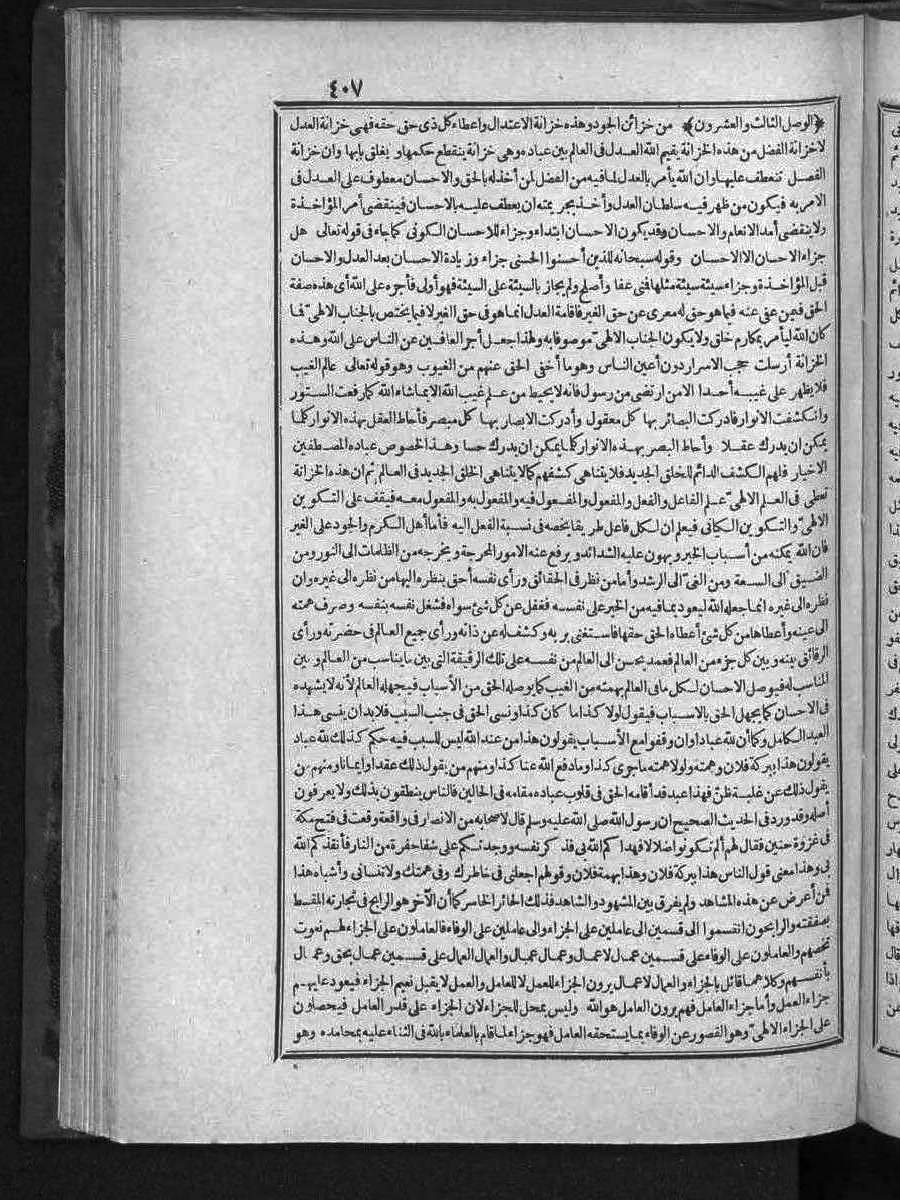 ٤٠٧
﴿الوصل الثالث والعشرون﴾ من خزائن الجود وهذه خزانة الاعتدال واعطاء كل ذى حق حقه فهى خزانة العدل
لاخزانة الفضل من هذه الخزانة يقيم الله العدل فى العالم بين عباده وهى خزانة ينقطع حكمها ويغلق بابها وان خزانة
الفضل تنعطف عليها وان الله يأمر بالعدل لما فيه من الفضل لمن أخذ له بالحق والاحسان معطوف على العدل فى
الامر به فيكون من ظهر فيه سلطان العدل وأخذ بجريمته ان يعطف عليه بالاحسان فينقضى أمر المؤاخذة
ولا ينقضى أمد الانعام والاحسان وقد يكون الاحسان ابتداء وجزاء للاحسان الكونى كما جاء فى قوله تعالى هل
جزاء الاحسان الا الاحسان وقوله سبحانه للذين أحسنوا الحسنى جزاء وزيادة الاحسان بعد العدل والاحسان
قبل المؤاخذة وجزاء سيئة سيئة مثلها فمن عفا وأصلح ولم يجاز بالسيئة على السيئة فهو أولى فأجره على الله أى هذه صفة
الحق فيمن عفى عنه فيما هو حق له معرى عن حق الغير فاقامة العدل انما هو فى حق الغير لا فيما يختص بالجناب الالهى فما
كان الله ليأمر بمكارم خلق ولا يكون الجناب الالهى موصوفا به ولهذا جعل أجر العافين عن الناس على الله وهذه
الخزانة أرسلت حجب الاسرار دون أعين الناس وهو ما أخفى الحق عنهم من الغيوب وهو قوله تعالى عالم الغيب
فلا يظهر على غيبه أحدا الا من ارتضى من رسول فانه لا يحيط من علم غيب الله الا بما شاء الله كما رفعت الستور
وانكشفت الانوار فادركت البصائر بها كل معقول وأدركت الابصار بها كل مبصر فأحاط العقل بهذه الانوار كلما
يمكن ان يدرك عقلا وأحاط البصر بهذه الانوار كلما يمكن ان يدرك حسا وهذا الخصوص عباده المصطفين
الاخيار فلهم الكشف الدائم للخلق الجديد فلا يتناهى كشفهم كما لا يتناهى الخلق الجديد فى العالم ثم ان هذه الخزانة
تعطى فى العلم الالهى علم الفاعل والفعل والمفعول والمفعول فيه والمفعول به والمفعول معه فيقف على التكوين
الالهى والتكوين الكيانى فيعلم ان لكل فاعل طريقا يخصه فى نسبة الفعل اليه فأما أهل الكرم والجود على الغير
فان الله يمكنه من أسباب الخير ويهون عليه الشدائد ويرفع عنه الامور المحرجة ويخرجه من الظلمات الى النور ومن
الضيق الى السعة ومن الغى الى الرشد وأما من نظر فى الحقائق ورأى نفسه أحق بنظره اليها من نظره الى غيره وان
نظره الى غيره انما جعله الله ليعود بما فيه من الخير على نفسه فغفل عن كل شئ سواه فشغل نفسه بنفسه وصرف همته
الى عينه وأعطاها من كل شئ أعطاه الحق حقها فاستغنى بربه وكشف له عن ذاته ورأى جميع العالم فى حضرته ورأى
الرقائق بينه وبين كل جزء من العالم فعمد يحسن الى العالم من نفسه على تلك الرقيقة التى بين ما يناسب من العالم وبين
المناسب له فيوصل الاحسان لكل ما فى العالم بهمته من الغيب كما يوصله الحق من الأسباب فيجهله العالم لأنه لا يشهده
فى الاحسان كما يجهل الحق بالاسباب فيقول لولا كذا ما كان كذا ونسى الحق فى جنب السبب فلا بد ان ينسى هذا
العبد الكامل وكما أن لله عبادا وان وقفوا مع الأسباب يقولون هذا من عند الله ليس للسبب فيه حكم كذلك لله عباد
يقولون هذا ببركة فلان وهمته ولولا همته ما جرى كذا وما دفع الله عنا كذا ومنهم من يقول ذلك عقدا وايمانا ومنهم من
يقول ذلك عن غلبة ظن فهذا عبد قد أقامه الحق فى قلوب عباده مقامه فى الحالين فالناس ينطقون بذلك ولا يعرفون
أصله وقد ورد فى الحديث الصحيح ان رسول الله صلى الله عليه وسلم قال لاصحابه من الانصار فى واقعة وقعت فى فتح مكة
فى غزوة حنين فقال لهم ألم تكونوا ضلالا فهداكم الله بى فذكر نفسه ووجدتكم على شفا حفرة من النار فأنقذكم الله
بى وهذا معنى قول الناس هذا ببركة فلان وهذا بهمة فلان وقولهم اجعلنى فى خاطرك وفى همتك ولا تنسانى وأشباه هذا
فمن أعرض عن هذه المشاهد ولم يفرق بين المشهود والشاهد فذلك الحائر الخاسر كما أن الآخر هو الرابح فى تجارته المقسط
بصفقته والرابحون انقسموا الى قسمين الى عاملين على الجزاء والى عاملين على الوفاء فالعاملون على الجزاء لهم نعوت
تخصهم والعاملون على الوفاء على قسمين عمال لا عمال وعمال عمال والعمال العمال على قسمين عمال بحق وعمال
بأنفسهم وكلاهما قائل بالجزاء والعمال لا عمال يرون الجزاء للعمل لا للعامل والعمل لا يقبل نعيم الجزاء فيعود عليهم
جزاء العمل وأما جزاء العامل فهم يرون العامل هو الله وليس بمحل للجزاء لان الجزاء على قدر العامل فيحصلون
على الجزاء الالهى وهو القصور عن الوفاء بما يستحقه العامل فهو جزاء لما قام بالعلماء بالله فى الثناء عليه بمحامده وهو